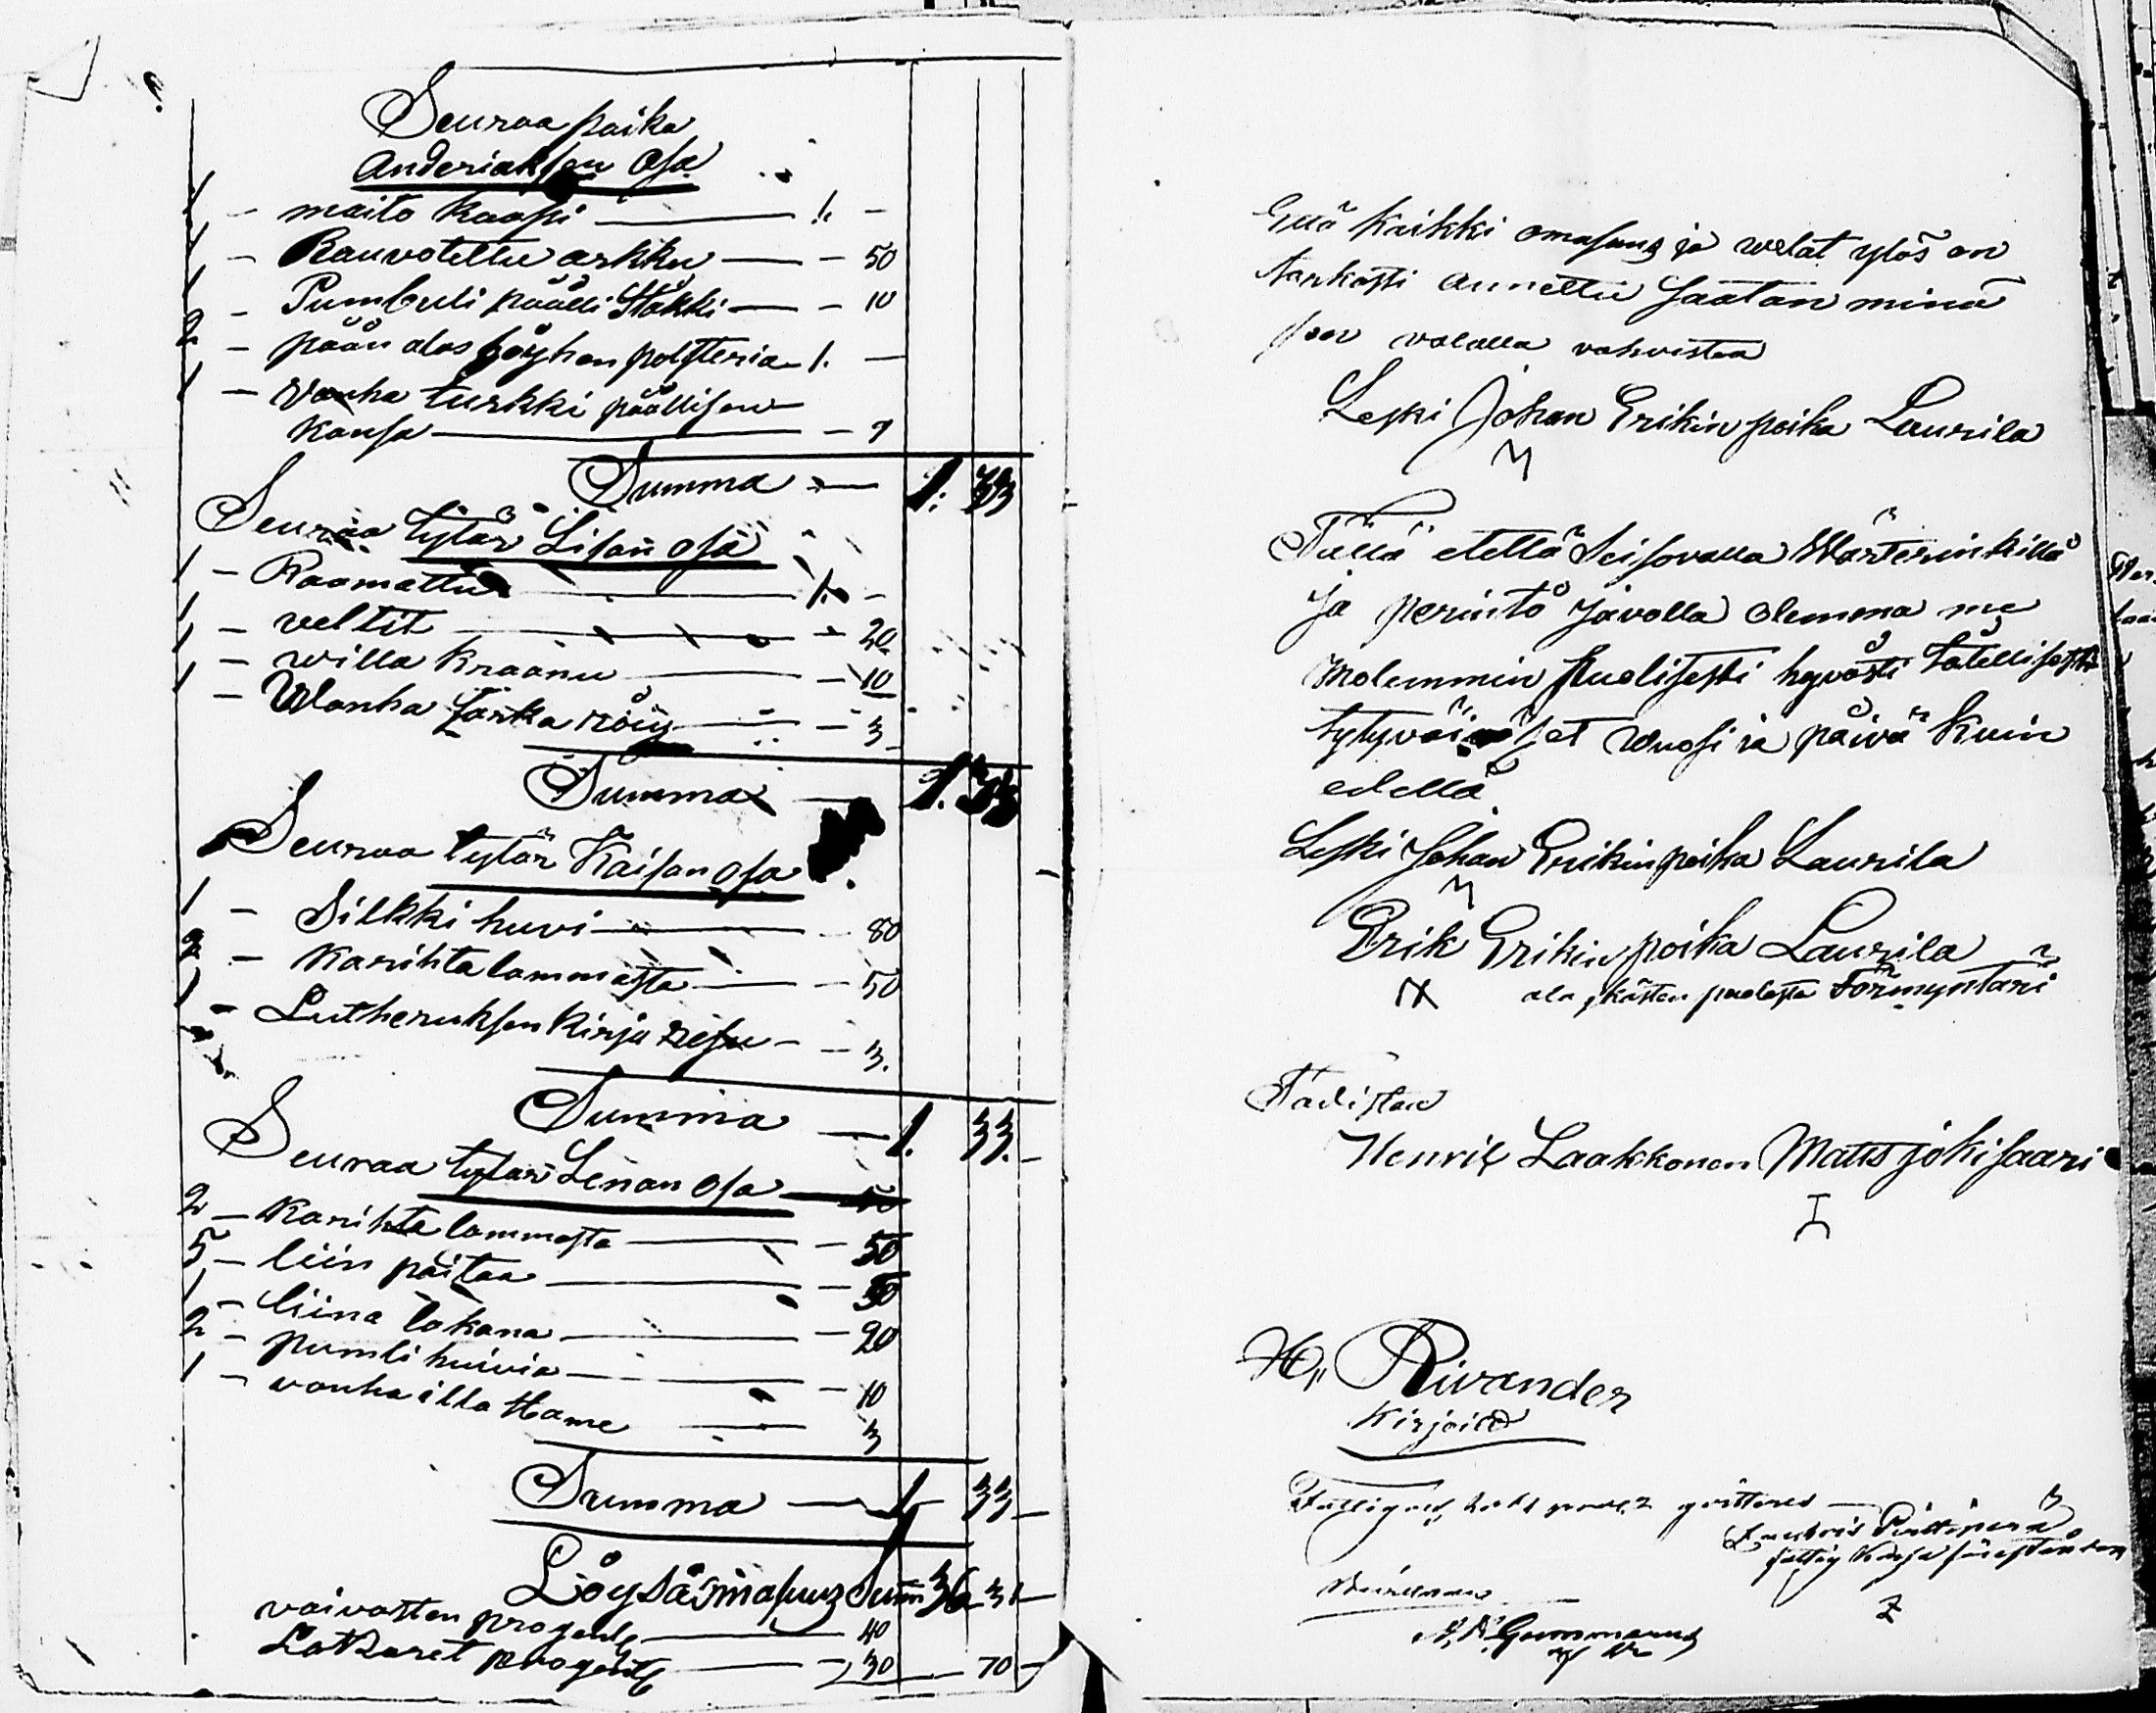 Seuraa poika
Anderiaksen Osa
1 - maito kaappi — 1. -
1 - Rauvotettu arkku — - 50
1 - Pumbuli päälli Häkki — - 10
2 - pään alas höyhen polsteria - 1. —
1 - Vanha turkki päällisen
kansa — - 9
Summa — 1. 33
Seuraa tytär Lisan osa
1 - Raamattu — 1. -
1 - veltit — - 20
1 - willa kraanu — - 10
1 - Wanha — - 3
Summa — 1. 33
Seuraa tytär Kaisan osa
1 - Silkki huvi — - 80
2 - karihta lammasta — - 50
1 - Lutheruksen kirja - - 3.
Summa — 1. 33. -
Seuraa tytär Lenan osa
2 - karihta lammasta — - 50
5 - liin paitaa — - 50
1 - liina lakana — - 20
2 - pumli huivia — - 10
1 - vanha illa Hame — 3
Summa — 1 33 -
Löysä omasuuz Sum 36 31 —
vaivasten — 40
Latzaret — - 30 — 70 -
Että kaikki omasuus ja welat ylös on
tarkasti annettu saatan minä
valalla vahvistaa
Leski Johan Erikin poika Laurila
Tällä etellä Seisovalla Wärterinkillä
ja perintö javolla olemma me
molemmin puolisesti hyvästi
tytyväiset wuosi ja päivä kuin
edellä
Leski Johan Erikin poika Laurila
Erik Erikin poika Laurila
ala ikästen puolesta Förmyntäri
Todistaa
Henrik Laakkonen Matts jokisaari
H,, Rivander
Kirjoitt